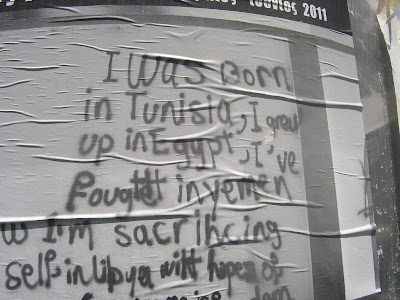 2011
I WAS BORN
in TUNISIA, I grew
up in EgypT, I've
Fought in yemen
w I'm sacrificing
self in libya with hopes of
dom